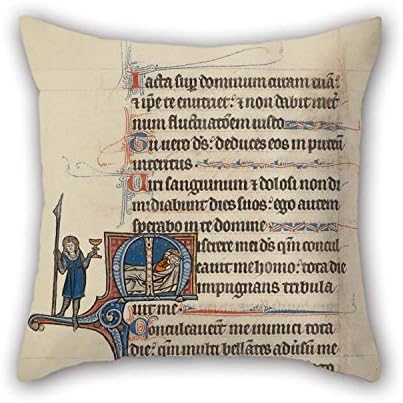 Iacta sup dominum curam tuā:
& ipe te enutriet: & non dabit in et
num fluctuatōem iusto
Tu uero ds: deduces eos in puteū
interitus.
Uiri sanguinum & dolosi non di
midiabunt dies suos: ego autem
sperabo in te domine
Miserere mei ds qm concul
cauit me homo: tota die
impugnans tribula
uit me.
Conculcauerūt me inimici tota
die: qm multi bellātes aduersū me